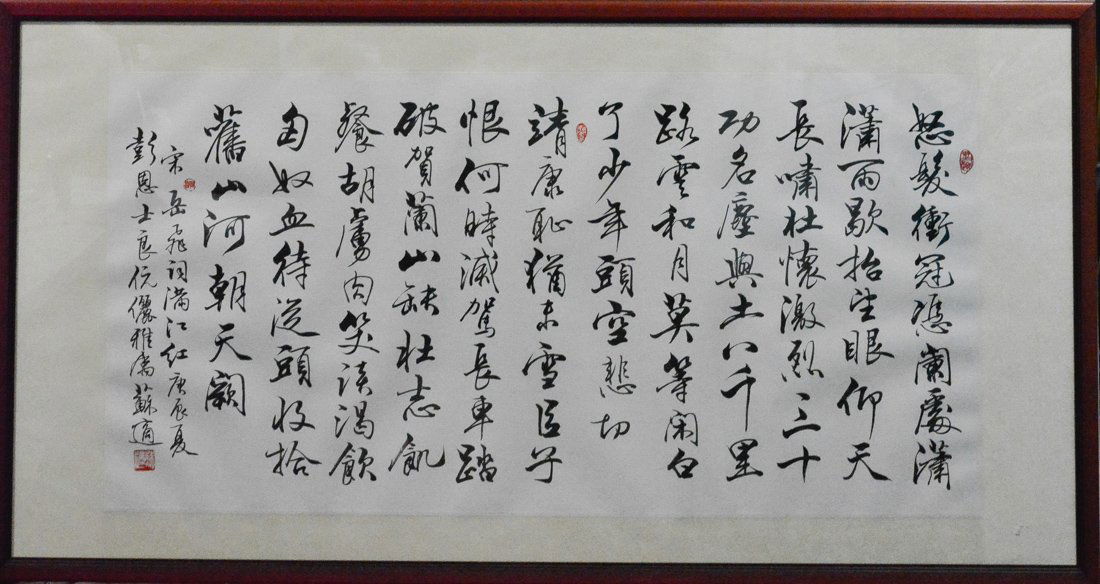 怒髮衝冠憑闌處瀟
瀟雨歇抬望眼仰天
長嘯壯懷激烈三十
功名塵與土八千里
路雲和月莫等閑白
了少年頭空悲切
靖康恥猶未雪臣子
恨何時滅駕長車踏
破賀蘭山缺壯志飢
餐胡虜肉笑談渴飲
匈奴血待從頭收拾
舊山河朝天闕
宋岳飛詞滿江紅庚辰夏
彭恩士良伉儷雅屬蘇適